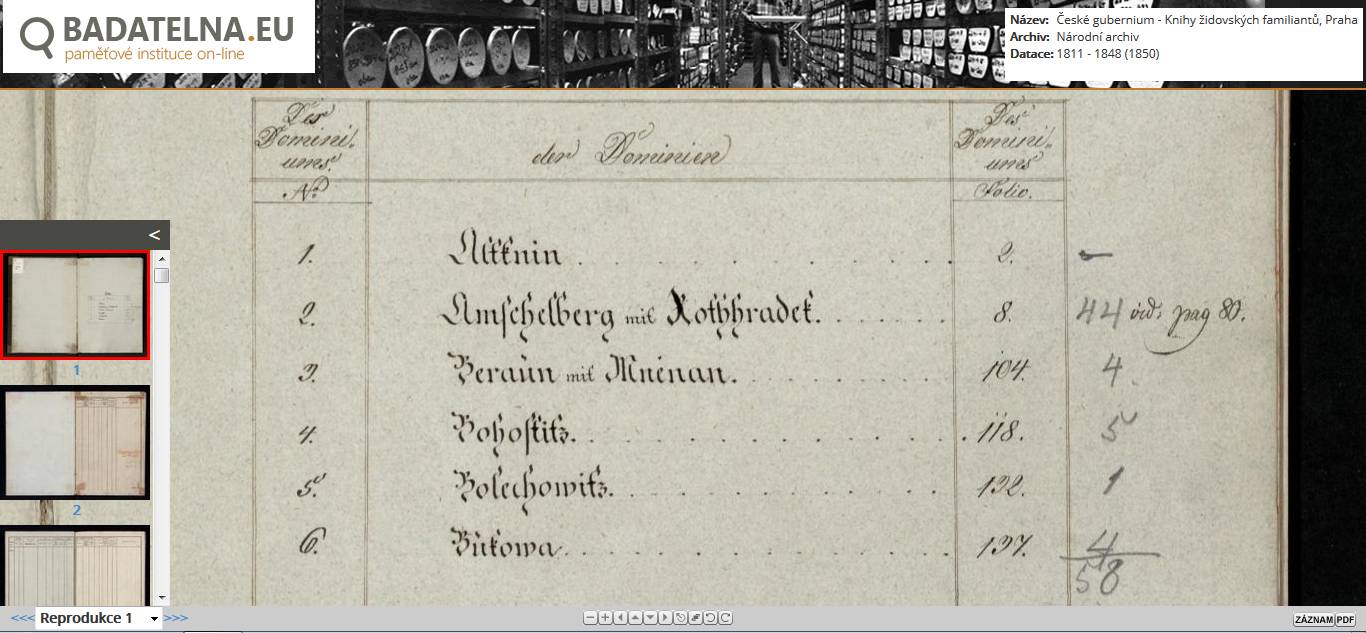 BADATELNA.EU
paměťové instituce on-line
Název: České gubernium - Knihy židovských familiantů, Praha
Archiv: Národní archiv
Datace: 1811 - 1848 (1850)
Des Domini- ums. der Dominien Des Domini- ums
No. Folio.
1. Altknin . . . . . . . . . 2. —
2. Amschelberg mit Kothhradek. . . . . . 8. 44 vid: pag 80.
3. Beraun mit Mnienan. . . . . . . . . 104. 4.
4. Bohostitz. . . . . . . . . . . 118. 5
5. Bolechowitz. . . . . . . . . 132. 1
6. Bukowa. . . . . . . . . . 137. 4
58
<
1
2
<<< Reprodukce 1 >>>
ZÁZNAM PDF